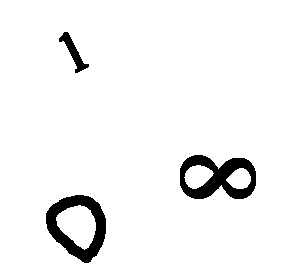 1
∞
0